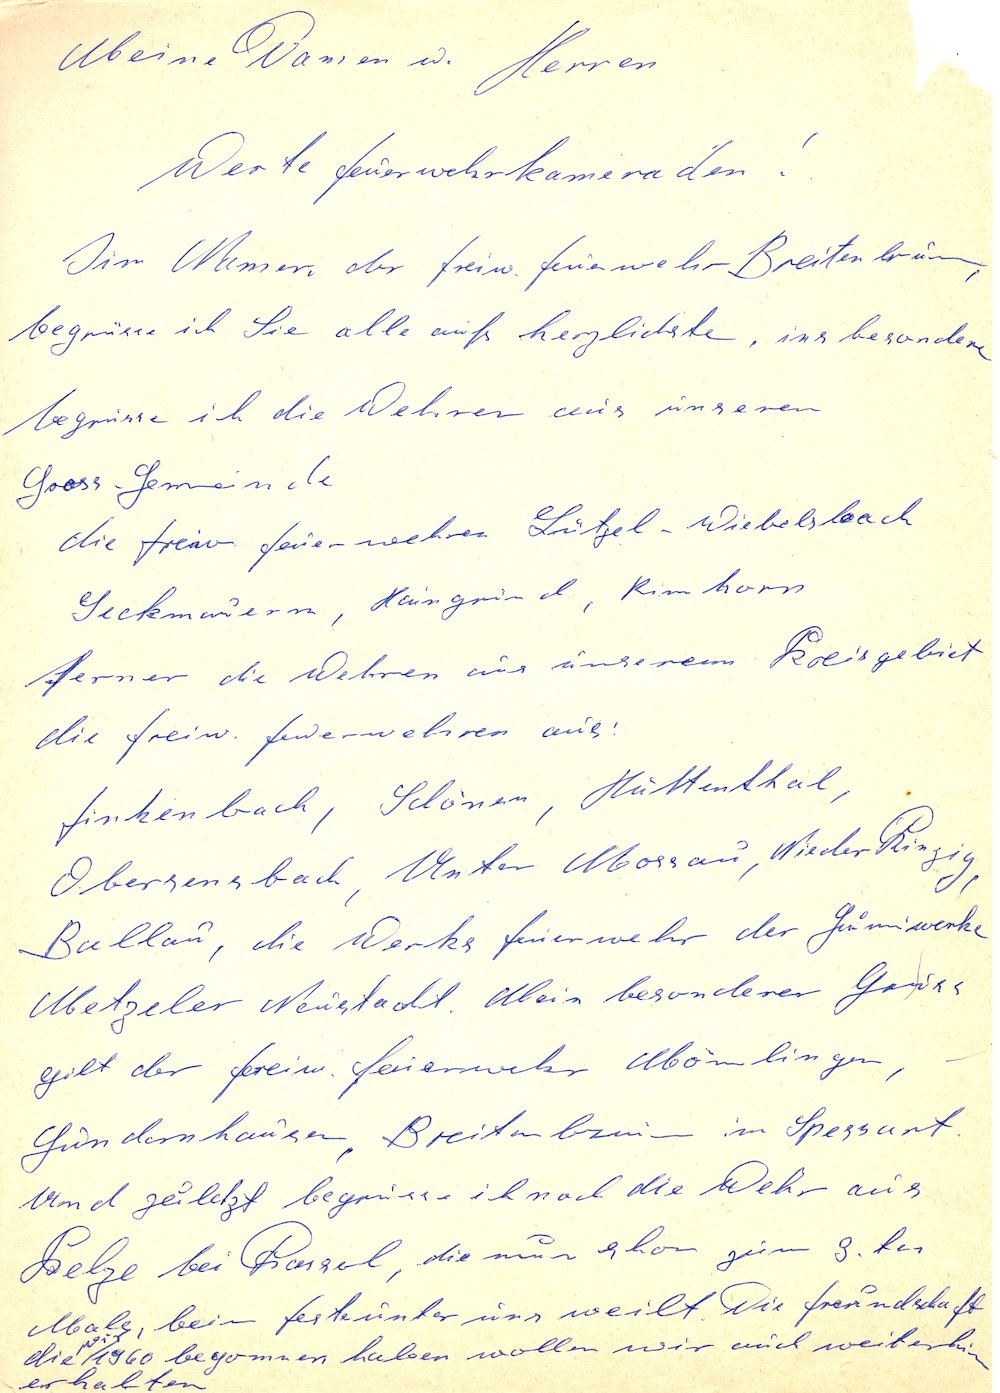 Meine Damen u. Herren
Werte Feuerwehrkameraden!
Im Namen der freiw. Feuerwehr Breitenbrunn,
begrüsse ich Sie alle aufs herzlichste, ins besondere
begrüsse ich die Wehren aus unseren
Gross-Gemeinde
die freiw. Feuerwehren Lützel-Wiebelsbach
Seckmauern, Haingrund, Rimhorn
ferner die Wehren aus unserem Kreisgebiet
die freiw. Feuerwehren aus:
Finkenbach, Schönen, Hüttenthal,
Obersensbach, Unter Mossau, Nieder Kinzig,
Bullau, die Werks Feuerwehr der Gumiwerke
Metzeler Neustadt. Mein besonderer Gruss
gilt der freiw. Feuerwehr Mömlingen,
Gundernhausen, Breitenbrunn im Spessart.
Und zuletzt begrüsse ich noch die Wehr aus
bei Kassel, die nun schon zum 3. ten
Male, beim Feste unter uns weilt. Die Freundschaft
die wir 1960 begonnen haben wollen wir auch weiterhin
erhalten